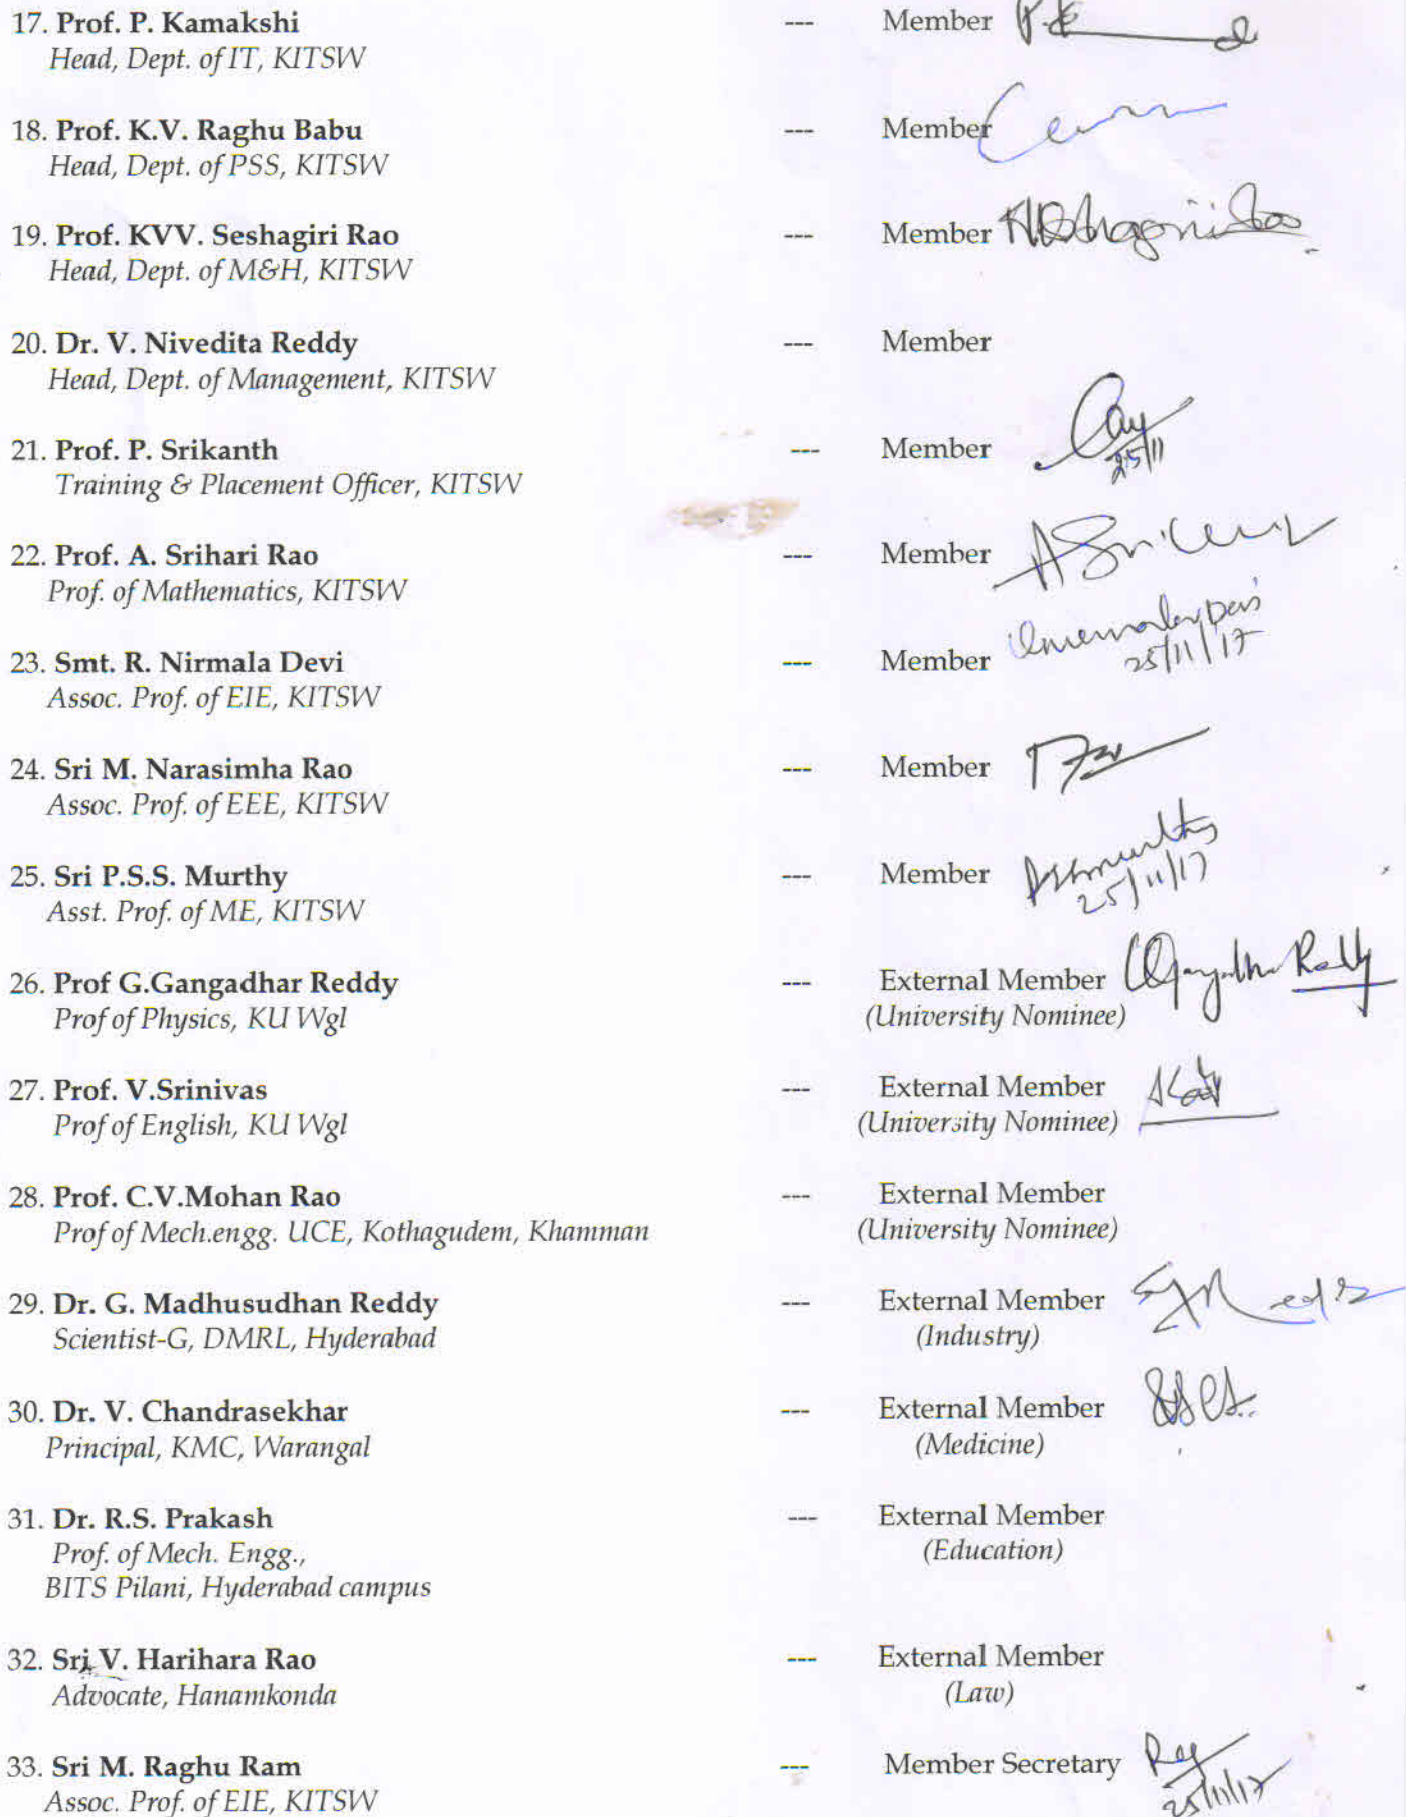 17. Prof. P. Kamakshi --- Member
Head, Dept. of IT, KITSW
18. Prof. K.V. Raghu Babu --- Member
Head, Dept. of PSS, KITSW
19. Prof. KVV. Seshagiri Rao --- Member
Head, Dept. of M&H, KITSW
20. Dr. V. Nivedita Reddy --- Member
Head, Dept. of Management, KITSW
21. Prof. P. Srikanth --- Member
25/11
Training & Placement Officer, KITSW
22. Prof. A. Srihari Rao --- Member
Prof. of Mathematics, KITSW
23. Smt. R. Nirmala Devi --- Member
25/11/17
Assoc. Prof. of EIE, KITSW
24. Sri M. Narasimha Rao --- Member
Assoc. Prof. of EEE, KITSW
25. Sri P.S.S. Murthy --- Member
25/11/17
Asst. Prof. of ME, KITSW
26. Prof G.Gangadhar Reddy --- External Member Gangadhar Reddy
Prof of Physics, KU Wgl (University Nominee)
27. Prof. V.Srinivas --- External Member
Prof of English, KU Wgl (University Nominee)
28. Prof. C.V.Mohan Rao --- External Member
Prof of Mech.engg. UCE, Kothagudem, Khamman (University Nominee)
29. Dr. G. Madhusudhan Reddy --- External Member
Scientist-G, DMRL, Hyderabad (Industry)
30. Dr. V. Chandrasekhar --- External Member
Principal, KMC, Warangal (Medicine)
31. Dr. R.S. Prakash --- External Member
Prof. of Mech. Engg., (Education)
BITS Pilani, Hyderabad campus
32. Sri V. Harihara Rao --- External Member
Advocate, Hanamkonda (Law)
33. Sri M. Raghu Ram --- Member Secretary
25/11/17
Assoc. Prof. of EIE, KITSW